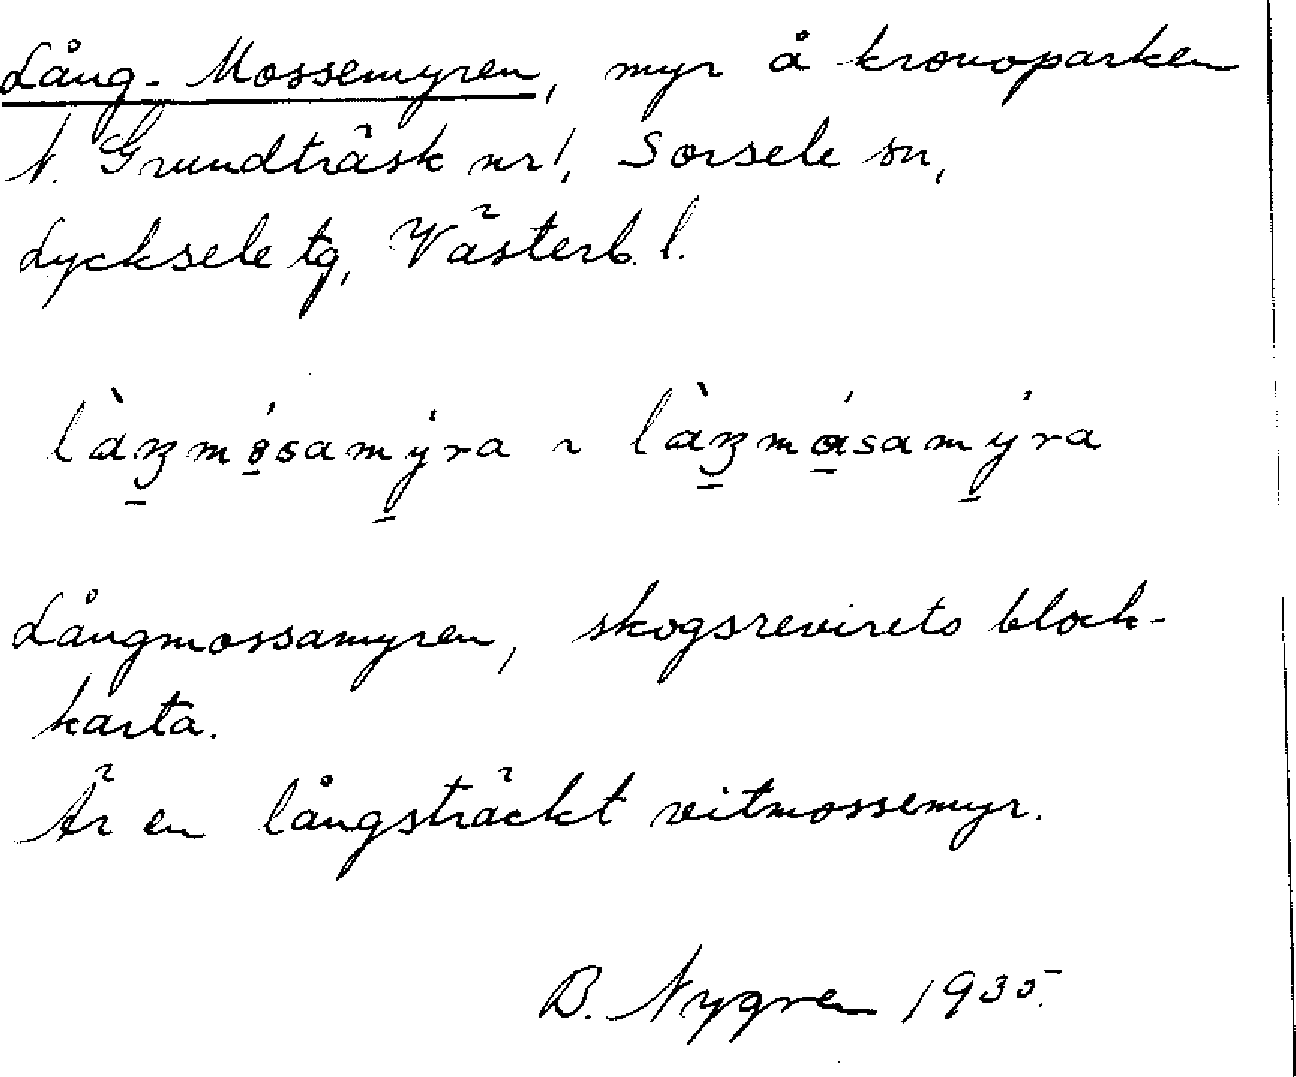 Lång-Mossemyren, myr å kronoparken
N. Grundträsk nr 1, Sorsele sn,
Lycksele tg, Västerb. l.
Långmossamyren, skogsrevirets block-
karta.
Är en långsträckt vitmossemyr.
B. Nygren 1935.